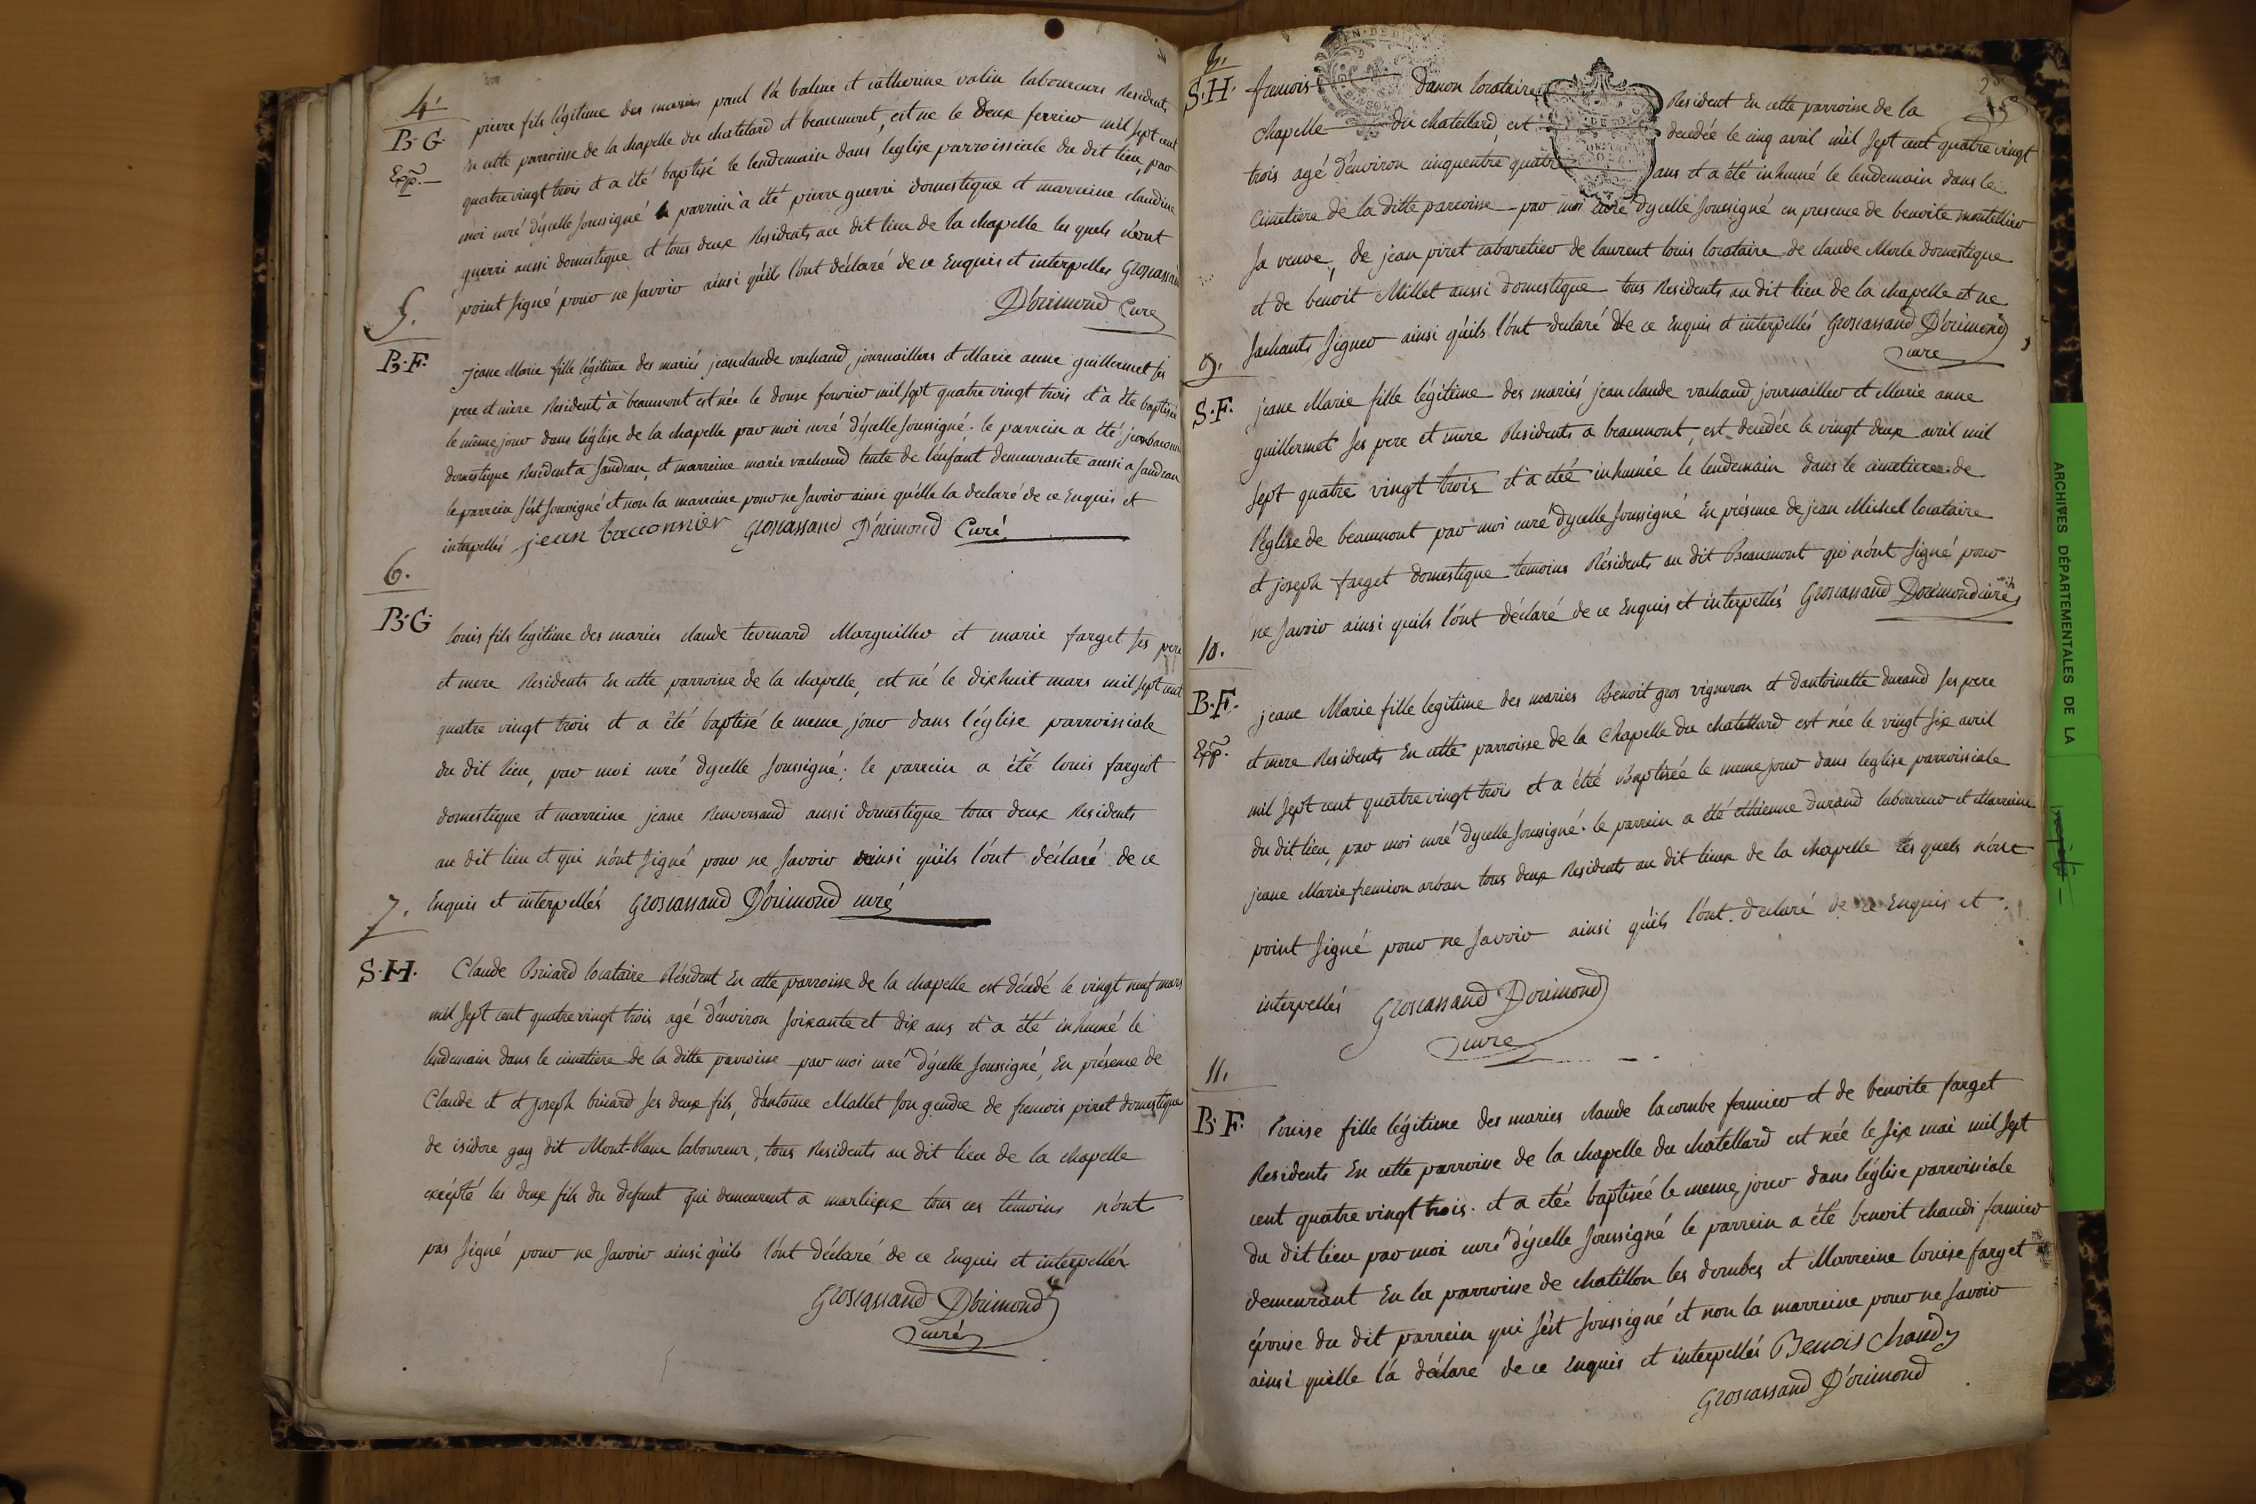 4.
B. G.
pierre fils légitime des mariés paul la baline et catherine valin laboureurs Residents
En cette parroisse de la chapelle du chatelard et beaumont, est ne le Deux fevrier mil sept cent
quatre vingt trois et a été baptisé le lendemain dans leglise parroissiale du dit lieu, par
moi curé dÿcelle soussigné le parrein a été pierre guerri domestique et marreine claudine
guerri aussi domestique et tous deux Residents au dit lieu de la chapelle les quels n'ont
point signé pour ne savoir ainsi qu'ils l'ont déclaré de ce Enquis et interpellés Groscassand
D'orimond Curé
5.
B. F.
jeane Marie fille légitime des mariés jean claude vachaud journaillers et Marie anne guillermet ses
pere et mère Resident a beaumont est née le douse fevrier mil sept quatre vingt trois et a été baptisée
le même jour dans léglise de la chapelle par moi curé dÿcelle soussigné. le parrein a été jean baconnier
domestique Resident a sandran, et marreine marie vachaud tente de l'enfant demeurante aussi a sandran
le parrein s'est soussigné et non la marreine pour ne savoir ainsi quélle la declaré de ce Enquis et
interpellés jean baconnier Groscassand D'orimond Curé
6.
B. G.
louis fils légitime des mariés claude tevenard Marguiller et marie farget ses pere
et mere Residents En cette parroisse de la chapelle, est né le dixhuit mars mil sept cent
quatre vingt trois et a été baptisé le meme jour dans l'église parroissiale
du dit lieu, par moi curé dycelle soussigné; le parrein a été louis fargeot
domestique et marreine jeane Renversand aussi domestique tous deux Residents
au dit lieu et qui n'ont signé pour ne savoir ainsi qu'ils l'ont déclaré de ce
Enquis et interpellés Groscassand D'orimond curé
7.
S. H.
Claude Brivard locataire Résident En cette parroisse de la chapelle est décédé le vingt neuf mars
mil sept cent quatre vingt trois agé d'environ soixante et dix ans et a été inhumé le
lendemain dans le cimetiere de la ditte parroisse par moi curé dÿcelle soussigné, En présence de
Claude et et joseph brivard ses deux fils, d'antoine Mallet son gendre de francois piret domestique
de isidore gay dit Mont-blanc laboureur, tous Residents au dit lieu de la chapelle
excepté les deux fils du defunt qui demeurent a marlieux tous ces temoins n'ont
pas signé pour ne savoir ainsi qu'ils l'ont déclaré de ce Enquis et interpellés
Groscassand D'orimond
curé
S. H.
francois Danon locataire Resident En cette parroisse de la
chapelle du chatellard, est decedée le cinq avril mil sept cent quatre vingt
trois agé d'environ cinquentre quatre ans et a été inhumé le lendemain dans le
cimetiere de la ditte parroisse par moi curé dycelle soussigné en presence de benoite montellier
sa veuve, de jean piret cabaretier de laurent louis locataire de claude Merle domestique
et de benoit Millet aussi domestique tous Residents au dit lieu de la chapelle et ne
sachants signer ainsi qu'ils l'ont declaré de ce Enquis et interpellés Groscassand D'orimond
curé
9.
S. F.
jeane Marie fille légitime des mariés jean claude vachaud journailler et Marie anne
guillermet ses pere et mere Residents a beaumont, est decedée le vingt deux avril mil
sept quatre vingt trois et a été inhumée le lendemain dans le cimetiere de
l'église de beaumont par moi curé dycelle soussigné En présence de jean Michel locataire
et joseph farget domestique temoins Résidents au dit Beaumont qui n'ont signé pour
ne savoir ainsi quils l'ont déclaré de ce Enquis et interpellés Groscassand Dorimond curé
10.
B. F.
jeane Marie fille legitime des mariés Benoit gros vigneron et d'antoinette durand ses pere
et mere Residents En cette parroisse de la Chapelle du chatellard est née le vingt six avril
mil sept cent quatre vingt trois et a été Baptisée le meme jour dans leglise parroissiale
du dit lieu, par moi curé dycelle soussigné. le parrein a été ethienne durand laboureur et Marreine
jeane Marie fremion arban tous deux Residents au dit lieux de la chapelle les quels n'ont
point signé pour ne savoir ainsi qu'ils l'ont declaré de ce Enquis et
interpellés Groscassand D'orimond
curé
11.
B. F.
Louise fille légitime des mariés claude lacombe fermier et de benoite farget
Residents En cette parroisse de la chapelle du chatellard est née le six mai mil sept
cent quatre vingt trois. et a été baptisée le meme jour dans l'église parroissiale
du dit lieu par moi curé d'ÿcelle soussigné le parrein a été benoit chaudi fermier
demeurant En la parroisse de chatillon les dombes et Marreine louise farget
épouse du dit parrein qui s'est soussigné et non la marreine pour ne savoir
ainsi quelle l'a déclaré de ce Enquis et interpellés Benois Chaudy
Groscassand D'orimond
ARCHIVES DÉPARTEMENTALES DE LA